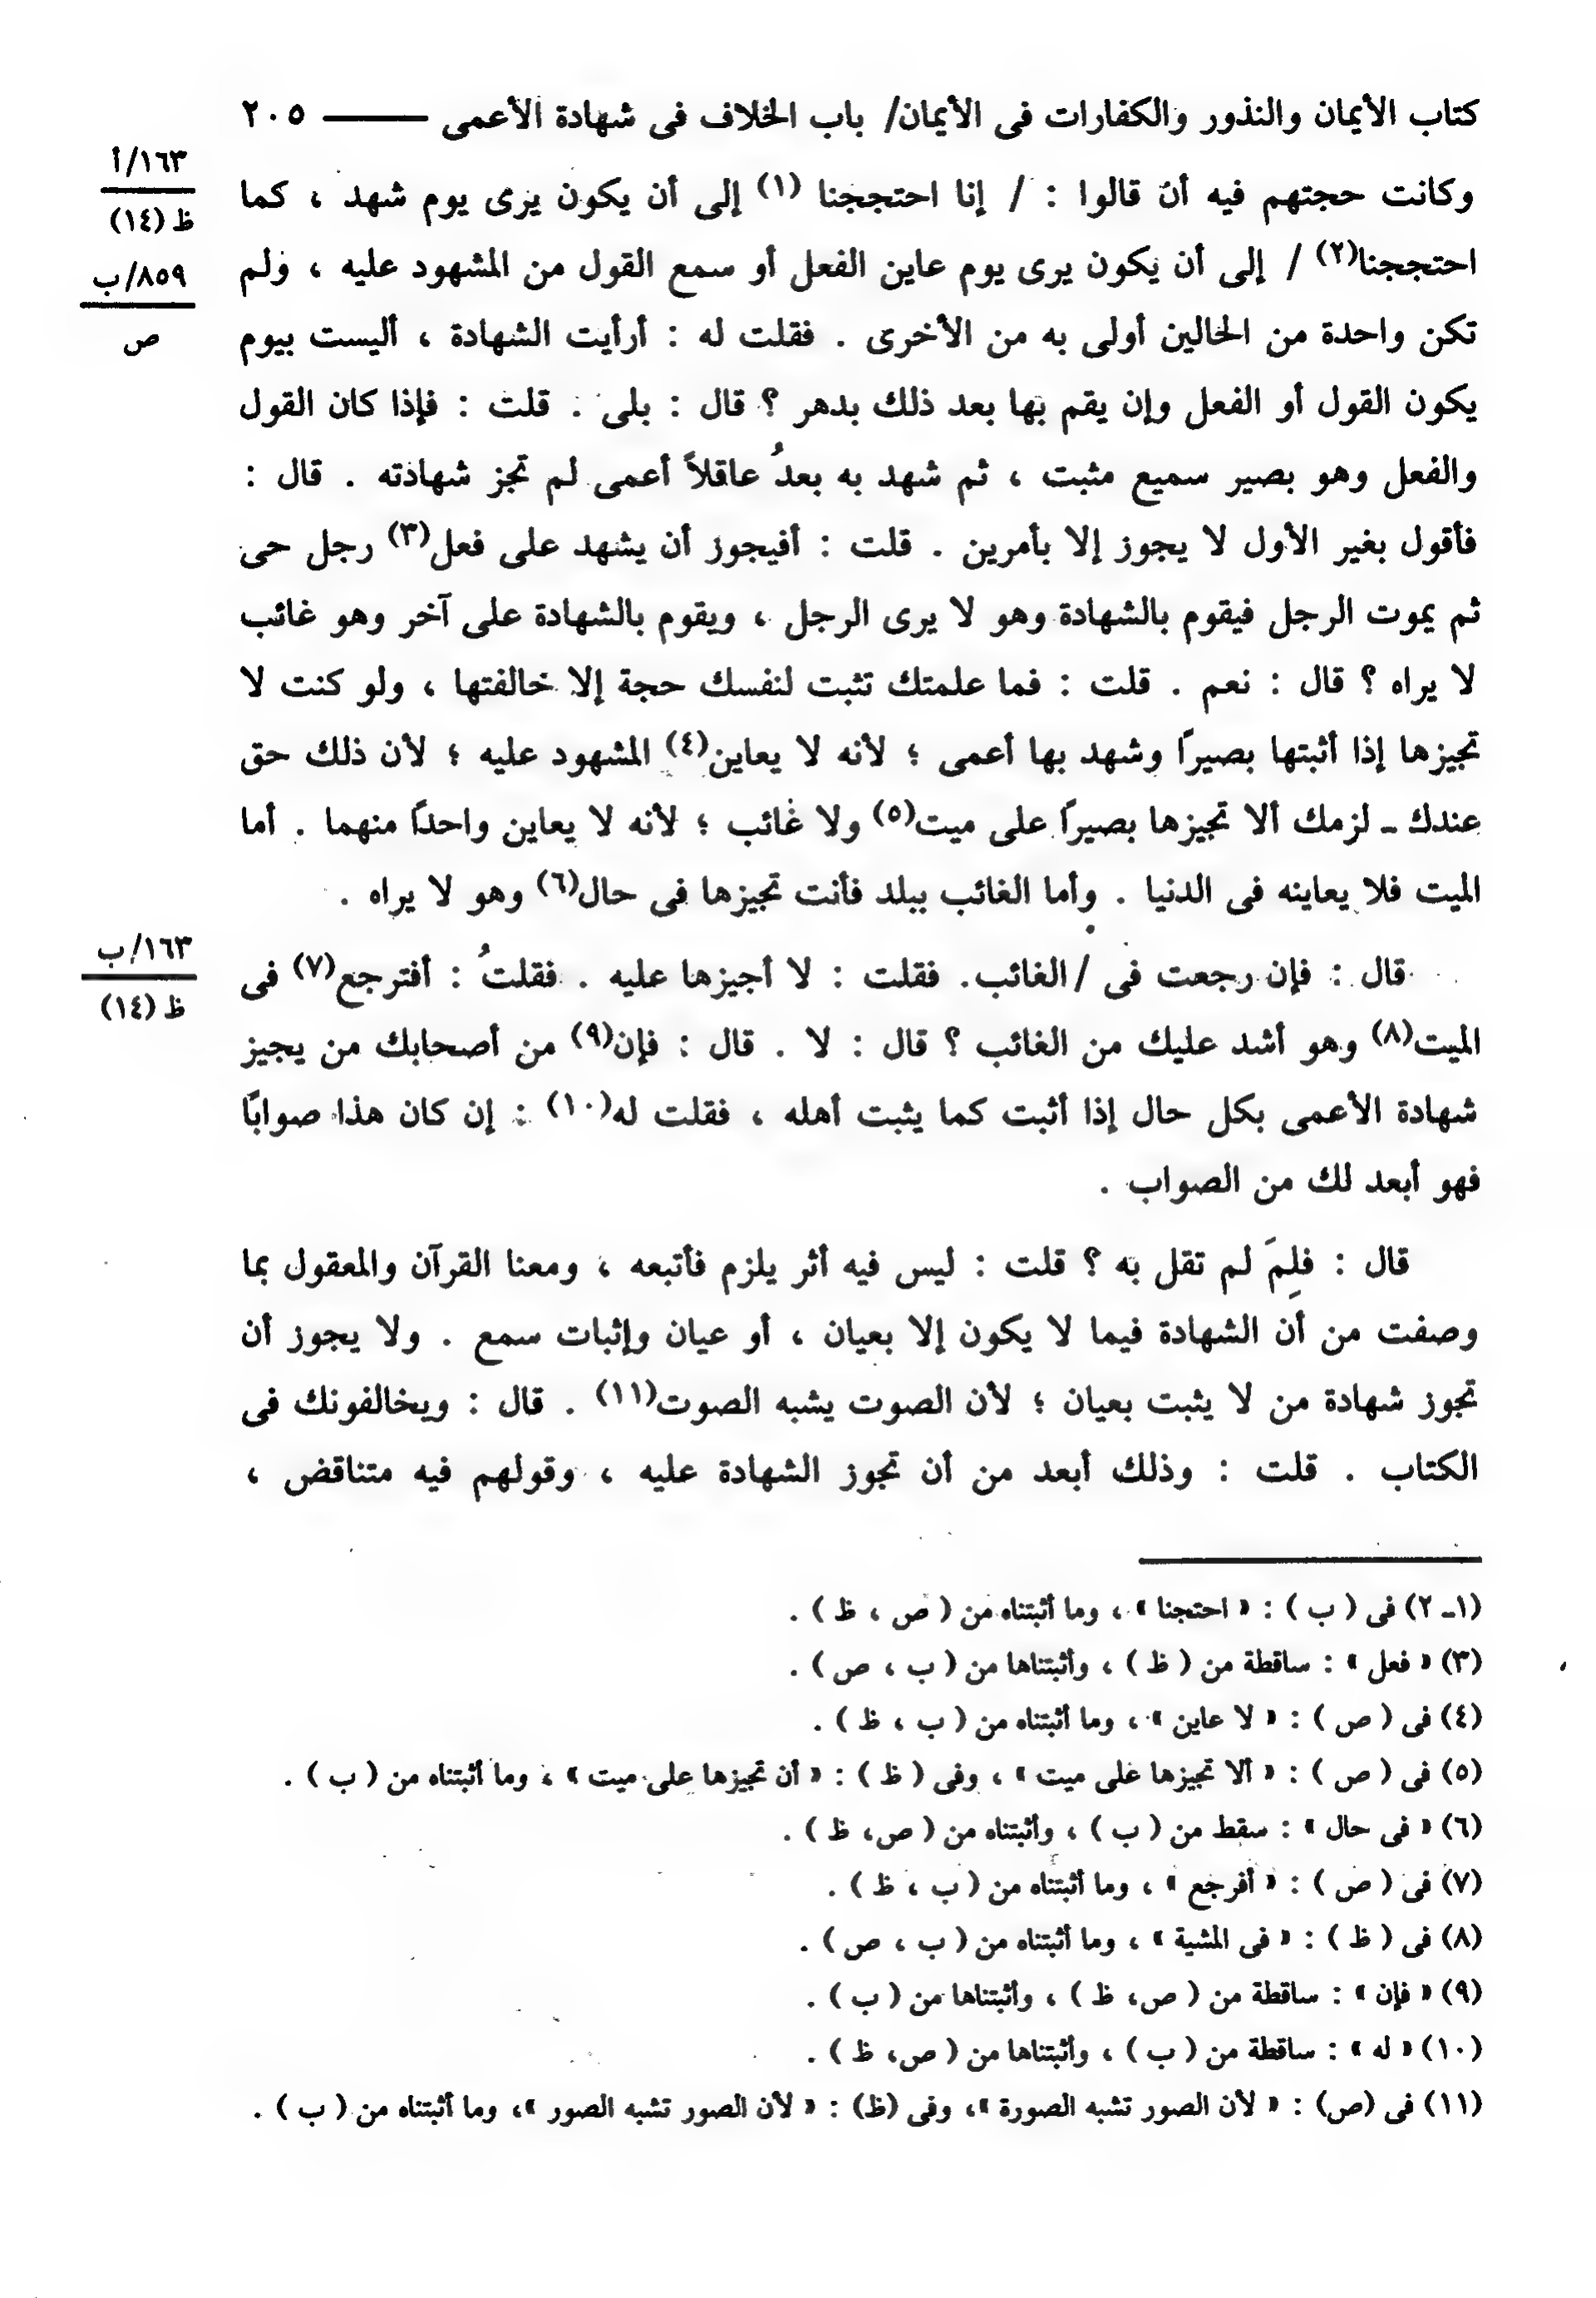 كتاب الأيمان والنذور والكفارات فى الأيمان/ باب الخلاف فى شهادة الأعمى ——— ٢٠٥
١٦٣/أ
ظ (١٤)
٨٥٩/ب
ص
وكانت حجتهم فيه أن قالوا : / إنا احتججنا (١) إلى أن يكون يرى يوم شهد ، كما
احتججنا(٢) / إلى أن يكون يرى يوم عاين الفعل أو سمع القول من المشهود عليه ، ولم
تكن واحدة من الحالين أولى به من الأخرى . فقلت له : أرأيت الشهادة ، أليست بيوم
يكون القول أو الفعل وإن يقم بها بعد ذلك بدهر ؟ قال : بلى . قلت : فإذا كان القول
والفعل وهو بصير سميع مثبت ، ثم شهد به بعدُ عاقلاً أعمى لم تجز شهادته . قال :
فأقول بغير الأول لا يجوز إلا بأمرين . قلت : أفيجوز أن يشهد على فعل(٣) رجل حى
ثم يموت الرجل فيقوم بالشهادة وهو لا يرى الرجل ، ويقوم بالشهادة على آخر وهو غائب
لا يراه ؟ قال : نعم . قلت : فما علمتك تثبت لنفسك حجة إلا خالفتها ، ولو كنت لا
تجيزها إذا أثبتها بصيرًا وشهد بها أعمى ؛ لأنه لا يعاين(٤) المشهود عليه ؛ لأن ذلك حق
عندك ـ لزمك ألا تجيزها بصيرًا على ميت(٥) ولا غائب ؛ لأنه لا يعاين واحدًا منهما . أما
الميت فلا يعاينه فى الدنيا . وأما الغائب ببلد فأنت تجيزها فى حال(٦) وهو لا يراه .
١٦٣/ب
ظ (١٤)
قال : فإن رجعت فى /الغائب. فقلت : لا أجيزها عليه . فقلتُ : أفترجع(٧) فى
الميت(٨) وهو أشد عليك من الغائب ؟ قال : لا . قال : فإن(٩) من أصحابك من يجيز
شهادة الأعمى بكل حال إذا أثبت كما يثبت أهله ، فقلت له(١٠) : إن كان هذا صوابًا
فهو أبعد لك من الصواب .
قال : فلِمَ لم تقل به ؟ قلت : ليس فيه أثر يلزم فأتبعه ، ومعنا القرآن والمعقول بما
وصفت من أن الشهادة فيما لا يكون إلا بعيان ، أو عيان وإثبات سمع . ولا يجوز أن
تجوز شهادة من لا يثبت بعيان ؛ لأن الصوت يشبه الصوت(١١) . قال : ويخالفونك فى
الكتاب . قلت : وذلك أبعد من أن تجوز الشهادة عليه ، وقولهم فيه متناقض ،
(١ـ ٢) فى ( ب ) : « احتجنا » ، وما أثبتناه من ( ص ، ظ ) .
(٣) « فعل » : ساقطة من ( ظ ) ، وأثبتناها من ( ب ، ص ) .
(٤) فى ( ص ) : « لا عاين » ، وما أثبتناه من ( ب ، ظ ) .
(٥) فى ( ص ) : « ألا تجيزها على ميت » ، وفى ( ظ ) : « أن تجيزها على ميت » ، وما أثبتناه من ( ب ) .
(٦) « فى حال » : سقط من ( ب ) ، وأثبتناه من ( ص، ظ ) .
(٧) فى ( ص ) : « أفرجع » ، وما أثبتناه من ( ب ، ظ ) .
(٨) فى ( ظ ) : « فى المشية » ، وما أثبتناه من ( ب ، ص ) .
(٩) « فإن » : ساقطة من ( ص، ظ ) ، وأثبتناها من ( ب ) .
(١٠) « له » : ساقطة من ( ب ) ، وأثبتناها من ( ص، ظ ) .
(١١) فى (ص) : « لأن الصور تشبه الصورة »، وفى (ظ) : « لأن الصور تشبه الصور »، وما أثبتناه من ( ب ) .